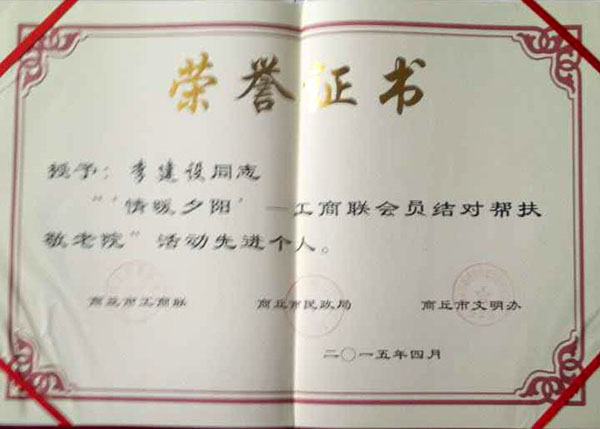 荣誉证书
授予：李建设同志
"'情暖夕阳'—工商联会员结对帮扶
敬老院"活动先进个人。
商丘市工商联 商丘市民政局 商丘市文明办
二〇一五年四月